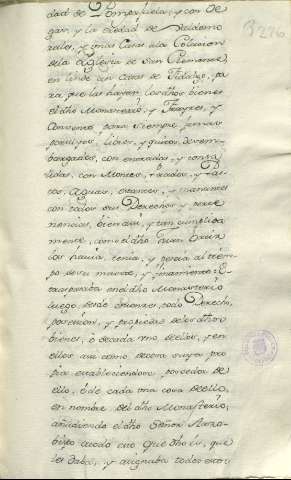 dad de Pompaxuela, y con De
gan, y la Ciudad de Valdemo
rales, y unas Casas a la Colacion
de la Yglesia de San Roman,
en linde con Casas de Fidalgo, pa
ra que las hayan los dhos bienes
el dho Monasterio, y Frayres, y
Convento para siempre jamas
por suyos, libres, y quitos, desem
bargados, con entradas, y con sa
lidas, con Montes, Prados, y Pas
tos, Aguas, estantes, y manantes
con todos sus Derechos y perte
nencias, bien asi, y tan cumplida
mente, como el dho Juan
los havia, tenia, y poseia al tiem
po de su muerte, y finamiento: E
traspasaba en el dho Monasterio
luego, desde entonces, todo Derecho,
posesion, y propiedad de los dhos
bienes, e de cada uno de ellos, y en
ellos asi como de cosa suya pro
pia estableciendose por poseedor de
ello, e de cada una cosa de ello,
en nombre del dho Monasterio,
añadiendo el dho Señor Arzo
bispo que dho es, que
les daba, y asignaba todos estos